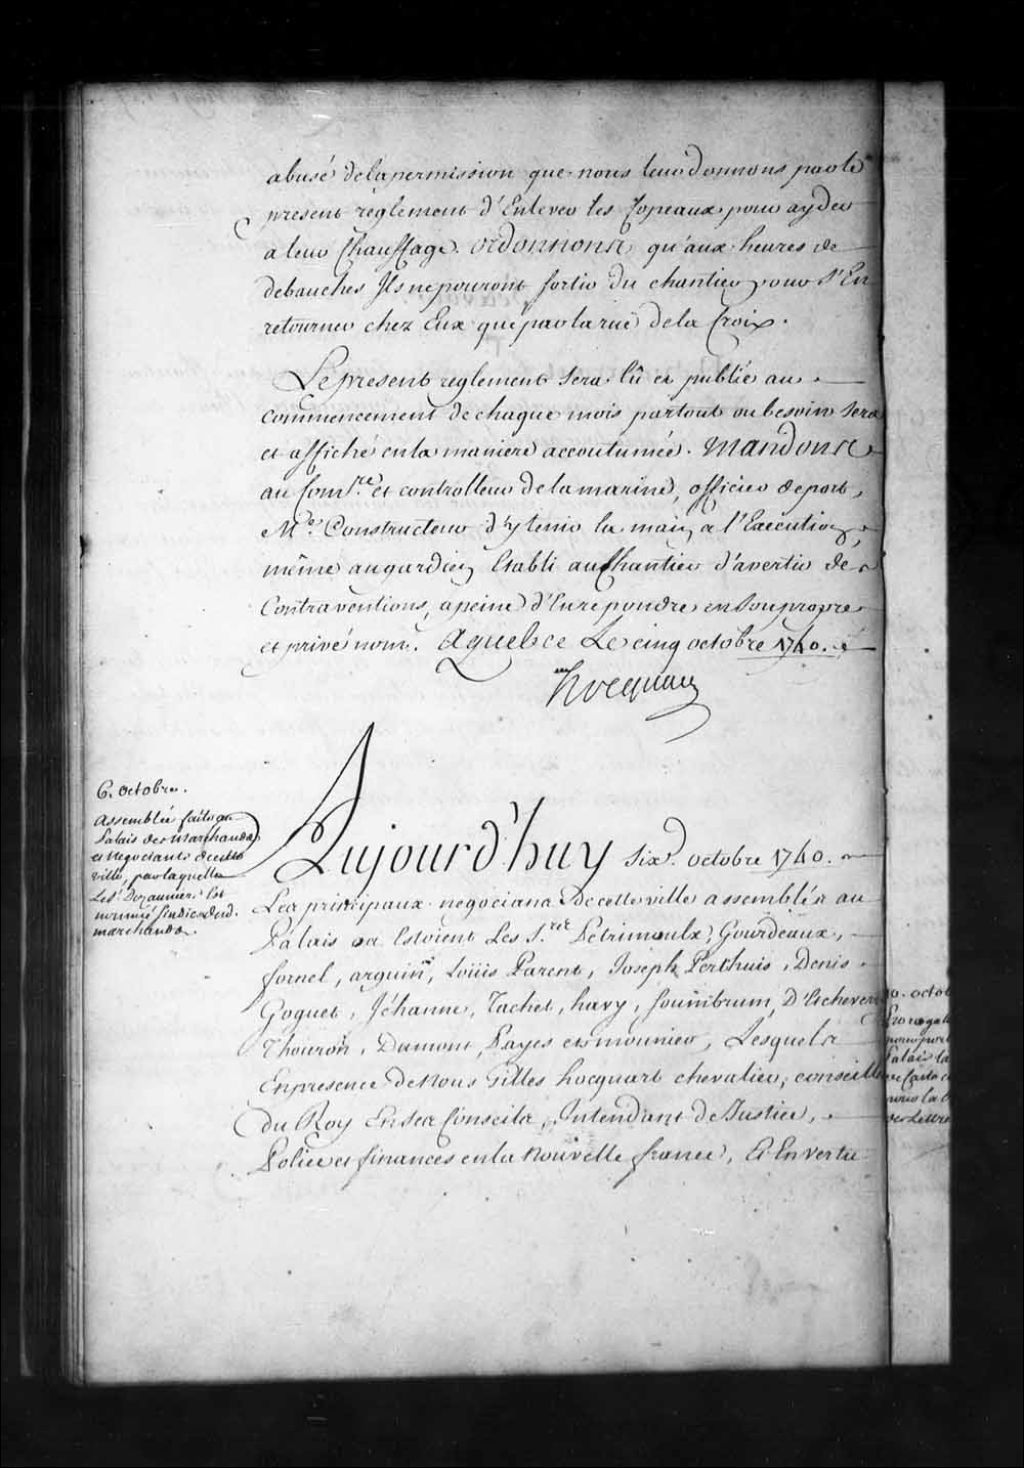 abusé de la permission que nous leur donnons par le
present reglement d'Enlever les Copeaux pour ayder
a leur Chauffage. ordonnons qu'aux heures de
debauches Ils ne pouront sortir du chantier pour s'En
retourner chez Eux que par la rue de la Croix.
Le present reglement sera lû et publié au
commencement de chaque mois partout ou besoin sera
et affiché en la maniere accoutumée. Mandons
au Com.re et controlleur de la marine, officier de port,
M.e Constructeur d'y tenir la main a l'Execution,
même au gardien Etabli au Chantier d'avertir des
Contraventions, a peine d'En repondre en son propre
et privé nom. a quebec Le cinq octobre 1740.
Hocquart
6. octobre.
assemblée faite au
Palais des Marchands
et Negociants de cette
ville, par laquelle
Le S.r Dezaunier Est
nommé sindic desd.
marchands.
Aujourd'huy six.e octobre 1740.
Les principaux negocians de cette ville assemblés au
Palais ou Estoient Les S.rs Petrimoulx, Gourdeaux,
fornel, arguin, Louis Parent, Joseph Perthuis, Denis
Goguet, Jéhanne, Tachet, havy, soumbrum, D'Etchevery
Thouron, Dumont, Payes et monnier, Lesquels
En presence de Nous Gilles hocquart chevalier, conseiller
du Roy En ses Conseils, Intendant de Justice,
Police et finances en la Nouvelle france, Et En vertu
10. octob
Palais